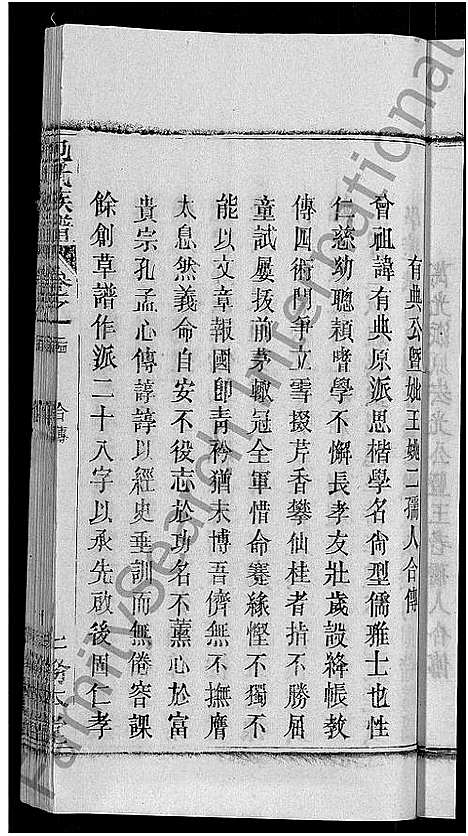 有典公暨妣王姚二孺人合傳
曾祖諱有典原派思楷學名尙型儒雅士也性
仁慈幼聰頴嗜學不懈長孝友壯歲設絳帳教
傳四術門爭立雪掇芹香攀仙桂者指不勝屈
童試屢拔前茅輙冠全軍惜命蹇緣慳不獨不
能以文章報國卽靑衿猶未博吾儕無不撫膺
太息然義命自安不役志於功名不薰心於富
貴宗孔孟心傳諄諄以經史垂訓而無倦容課
餘創草譜作派二十八字以承先啟後固仁孝
氏族譜
合傳
FamilySearch International